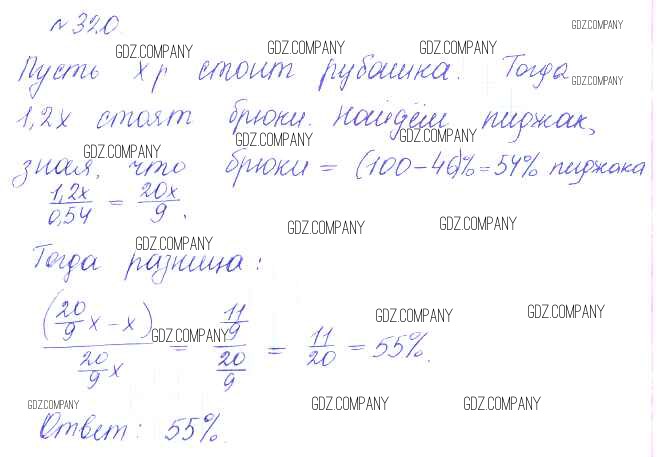 № 320.
GDZ.COMPANY
GDZ.COMPANY GDZ.COMPANY GDZ.COMPANY
Пусть x р стоит рубашка. Тогда
GDZ.COMPANY
1,2x стоят брюки. Найдём пиджак,
GDZ.COMPANY GDZ.COMPANY GDZ.COMPANY
зная, что брюки = (100 - 46)% = 54% пиджака
1,2x/0,54 = 20x/9.
GDZ.COMPANY GDZ.COMPANY GDZ.COMPANY
Тогда разница:
(20/9 x - x) / (20/9 x) = (11/9) / (20/9) = 11/20 = 55%.
GDZ.COMPANY GDZ.COMPANY GDZ.COMPANY
GDZ.COMPANY GDZ.COMPANY GDZ.COMPANY
Ответ: 55%.